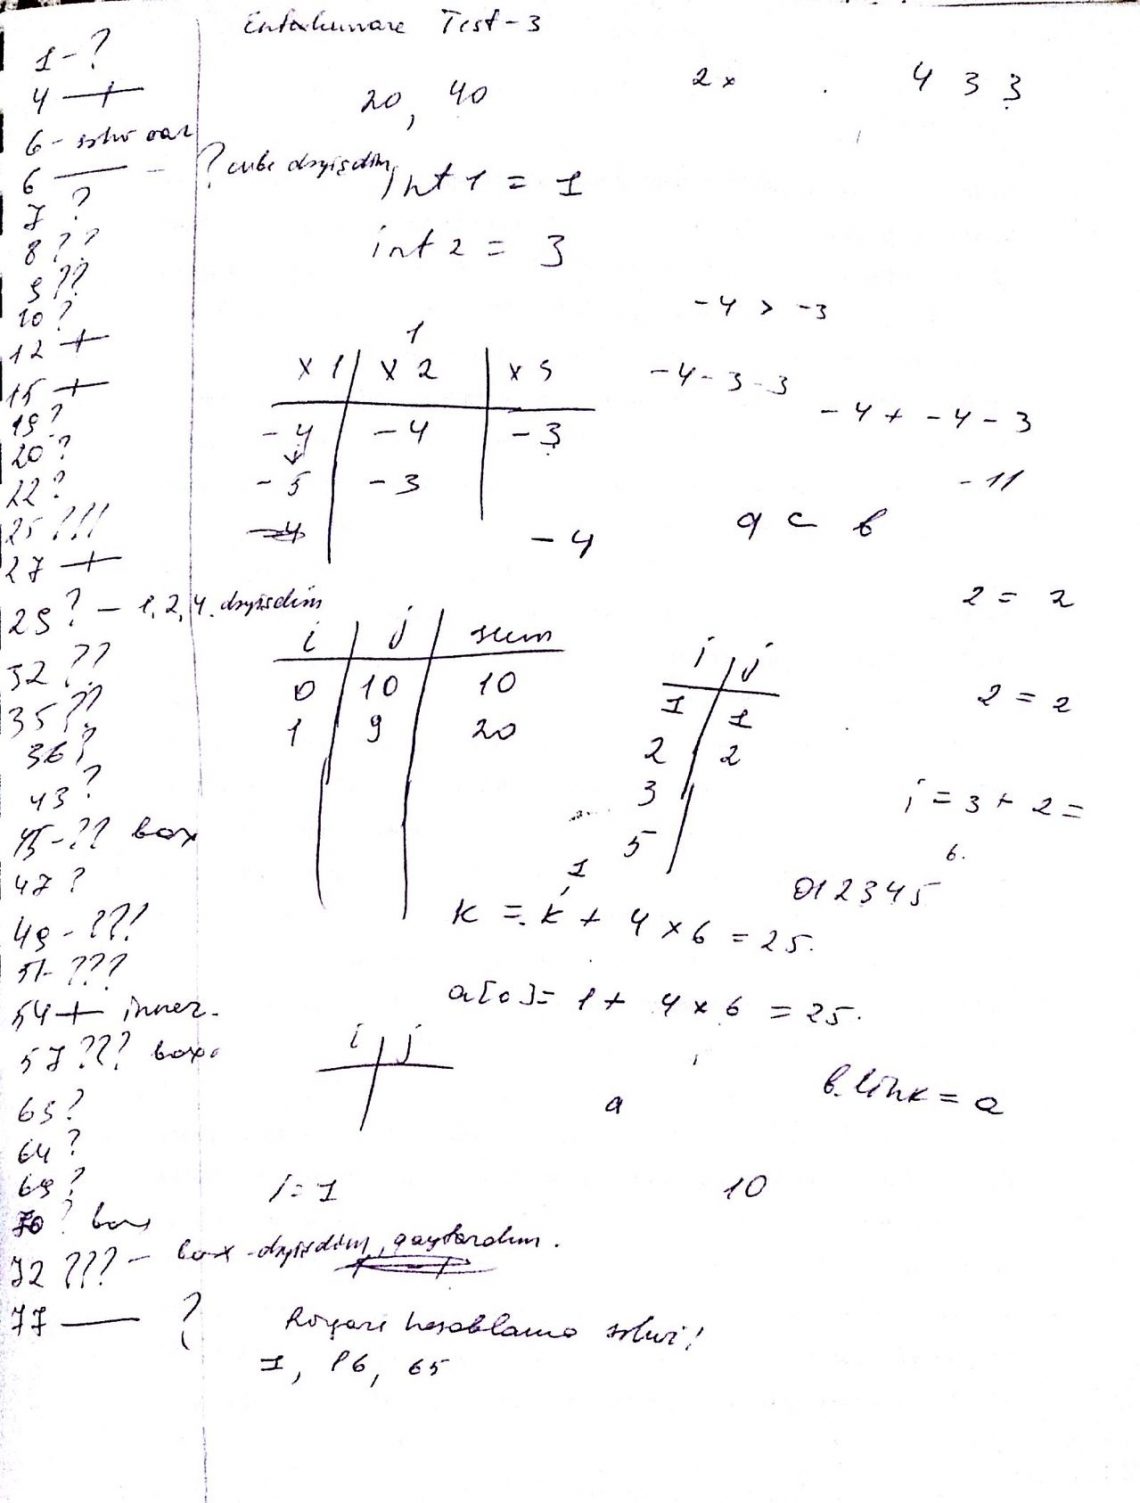 Enthuware Test-3
1-?
4 —+
6- səhv var
6 —— - ? cube dəyişdim
7 ?
8 ??
9 ??
10 ?
12 +
15 +
19 ?
20 ?
22 ?
25 !!!
27 +
29 ? - 1, 2, 4. dəyişdim
32 ??
35 ??
36 ?
43 ?
45-?? box
47 ?
49 - ???
51- ???
54 + inner.
57 ??? box.
63 ?
64 ?
69 ?
70 ? box
72 ??? - box -dəyişdim, qaytardım.
77 —— ?
20, 40
2x
4 3 3
int 1 = 1
int 2 = 3
-4 > -3
1
x 1 | x 2 | x 3
-4 | -4 | -3
↓
-5 | -3
-4
-4
-4 - 3 - 3
-4 + -4 - 3
-11
a = b
2 = 2
2 = 2
i | j | sum
0 | 10 | 10
1 | 9 | 20
i | j
1 | 1
2 | 2
3
5
i = 3 + 2 =
6.
012345
1
k = k + 4 x 6 = 25.
a[0] = 1 + 4 x 6 = 25.
i | j
a
b.link = a
i = 1
10
Rəqəmi hesablama səhvi!
1, 16, 65